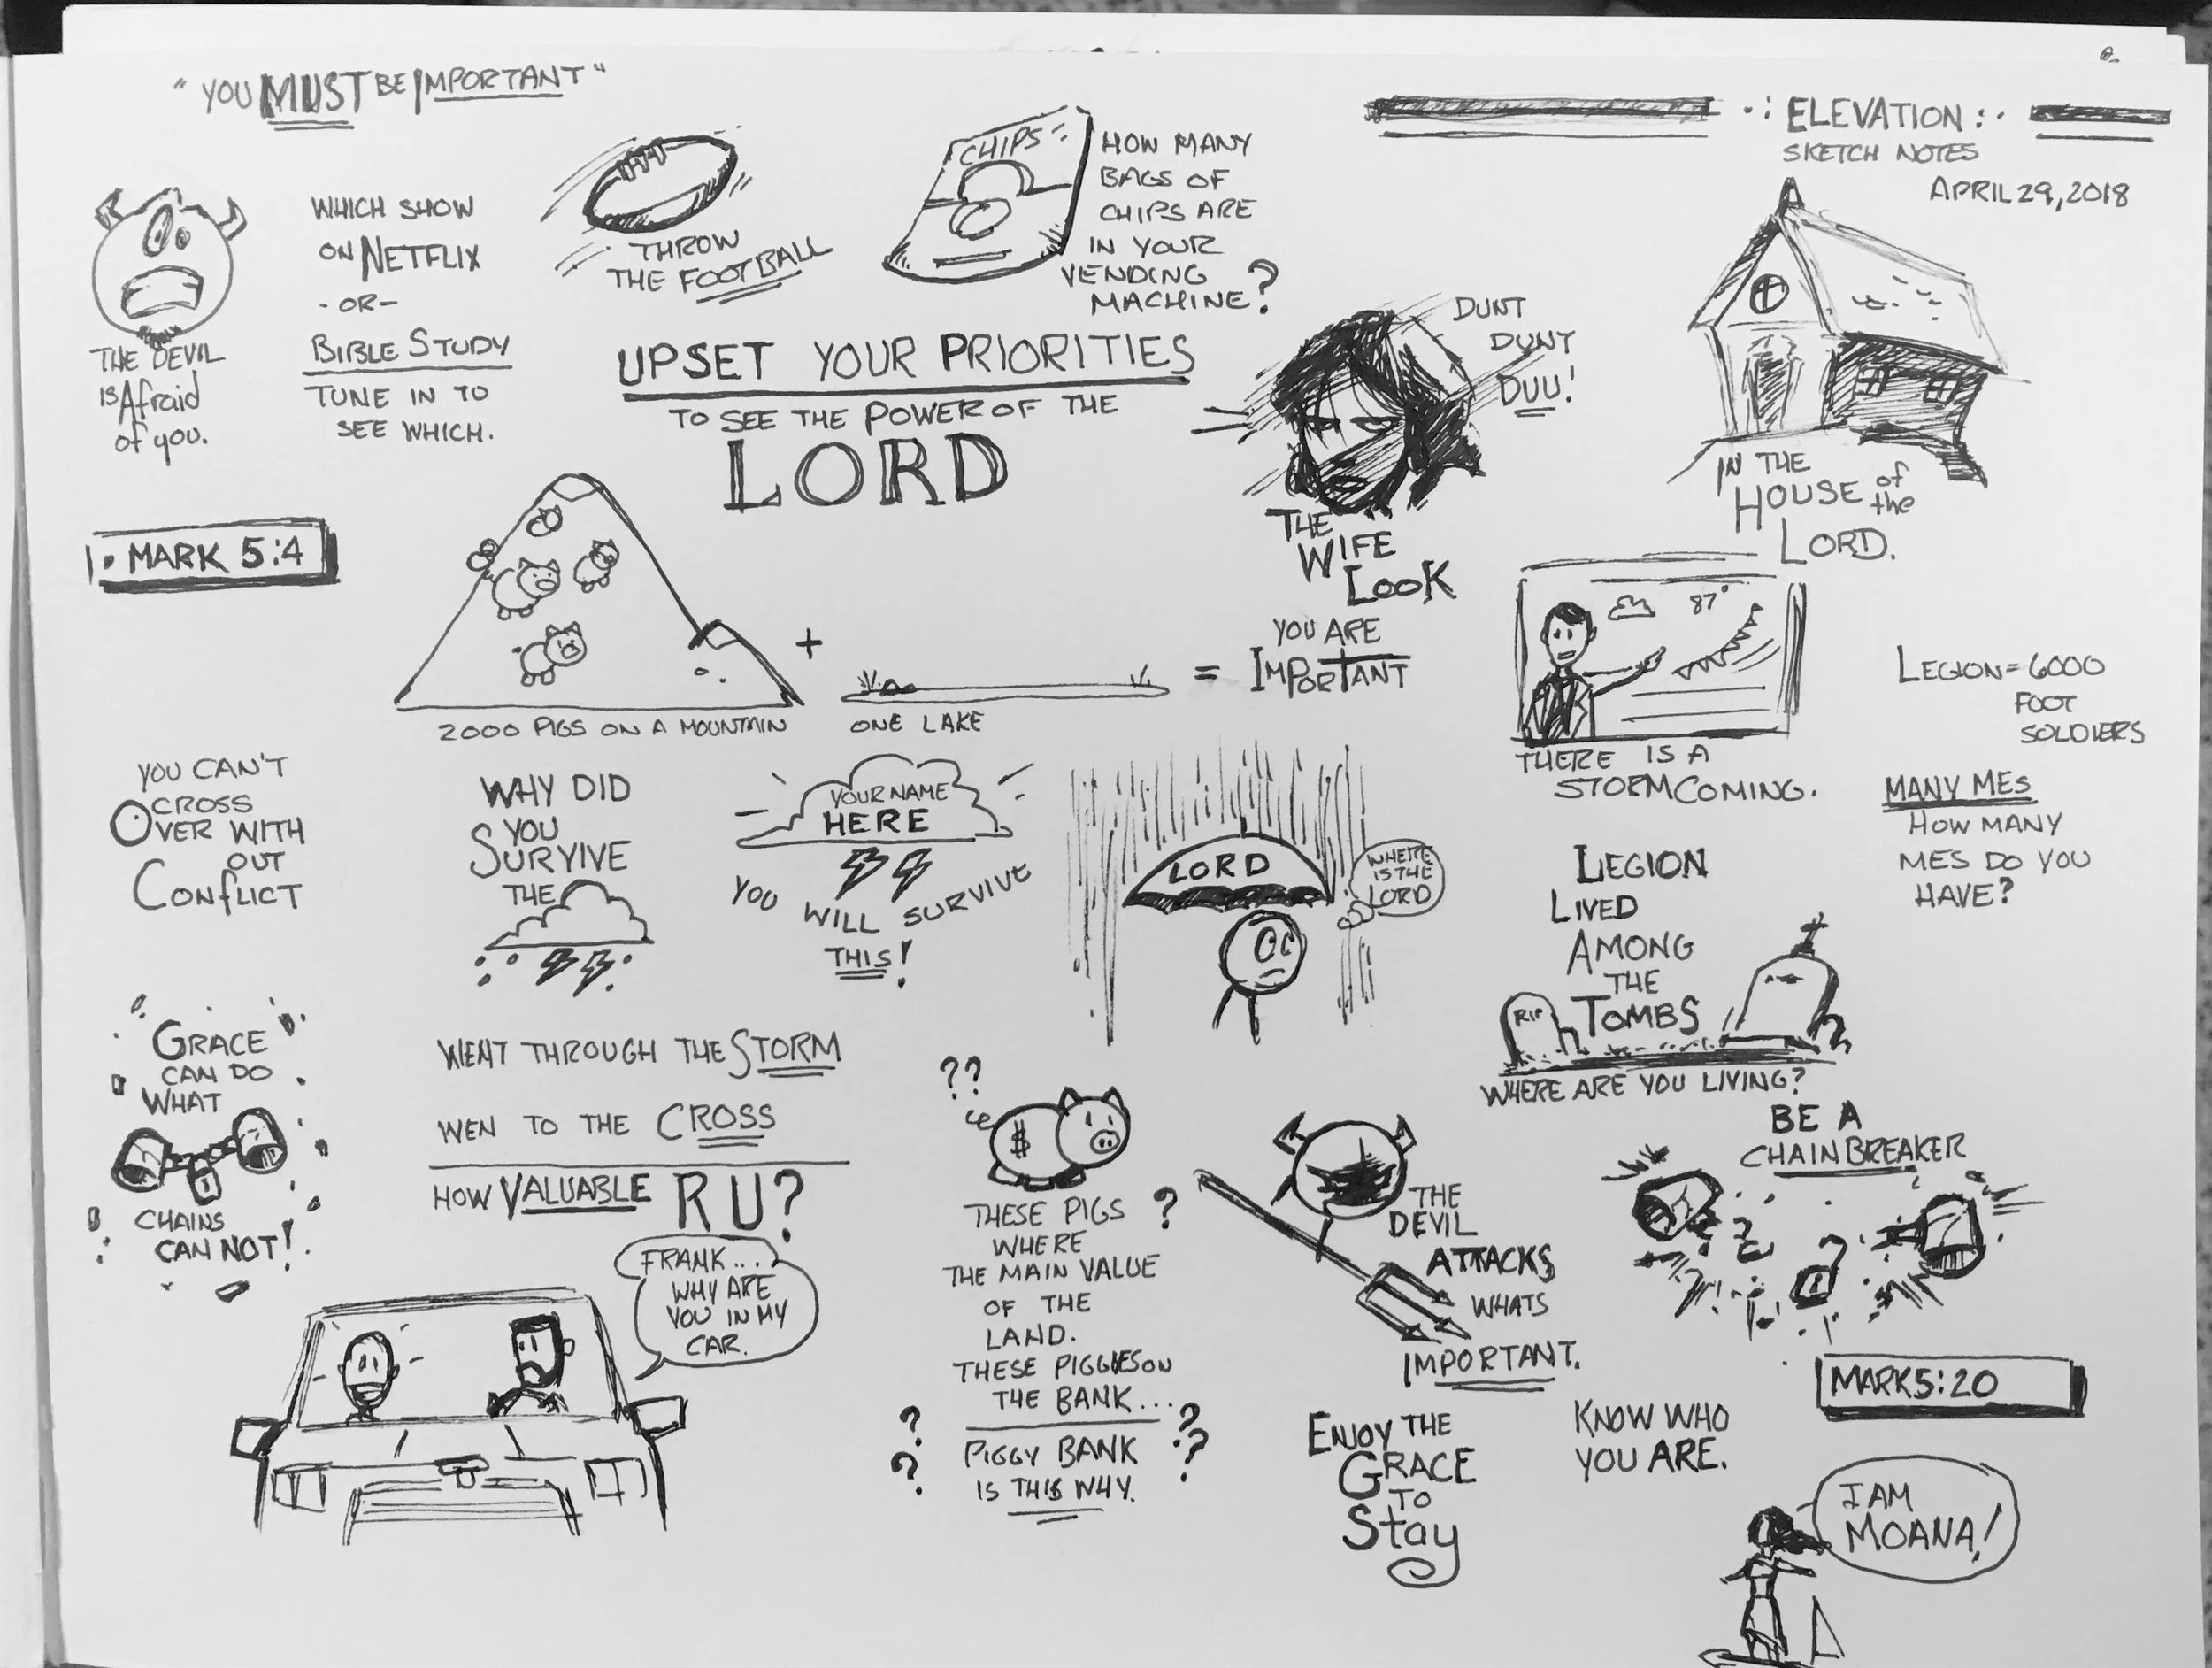 "YOU MUST BE IMPORTANT"
ELEVATION
SKETCH NOTES
APRIL 29, 2018
THE DEVIL
IS Afraid
of you.
WHICH SHOW
ON NETFLIX
-OR-
BIBLE STUDY
TUNE IN TO
SEE WHICH.
THROW
THE FOOTBALL
CHIPS
HOW MANY
BAGS OF
CHIPS ARE
IN YOUR
VENDING
MACHINE?
UPSET YOUR PRIORITIES
TO SEE THE POWER OF THE
LORD
DUNT
DUNT
DUU!
THE
WIFE
LOOK
IN THE
HOUSE of
the
LORD.
MARK 5:4
2000 PIGS ON A MOUNTAIN
+
ONE LAKE
=
YOU ARE
IMPORTANT
87°
THERE IS A
STORM COMING.
LEGION = 6000
FOOT
SOLDIERS
MANY MES
HOW MANY
MES DO YOU
HAVE?
YOU CAN'T
CROSS
OVER WITH
OUT
CONfLICT
WHY DID
YOU
SURVIVE
THE
YOUR NAME
HERE
YOU WILL SURVIVE
THIS!
LORD
WHERE
IS THE
LORD
LEGION
LIVED
AMONG
THE
TOMBS
RIP
WHERE ARE YOU LIVING?
GRACE
CAN DO
WHAT
CHAINS
CAN NOT!
WENT THROUGH THE STORM
WEN TO THE CROSS
HOW VALUABLE R U?
FRANK...
WHY ARE
YOU IN MY
CAR.
??
$
THESE PIGS ?
WHERE
THE MAIN VALUE
OF THE
LAND.
THESE PIGGIES ON
THE BANK...
? ??
PIGGY BANK
? ?
IS THIS WHY.
THE
DEVIL
ATTACKS
WHATS
IMPORTANT.
BE A
CHAIN BREAKER
MARK 5:20
ENJOY THE
GRACE
TO
Stay
KNOW WHO
YOU ARE.
I AM
MOANA!